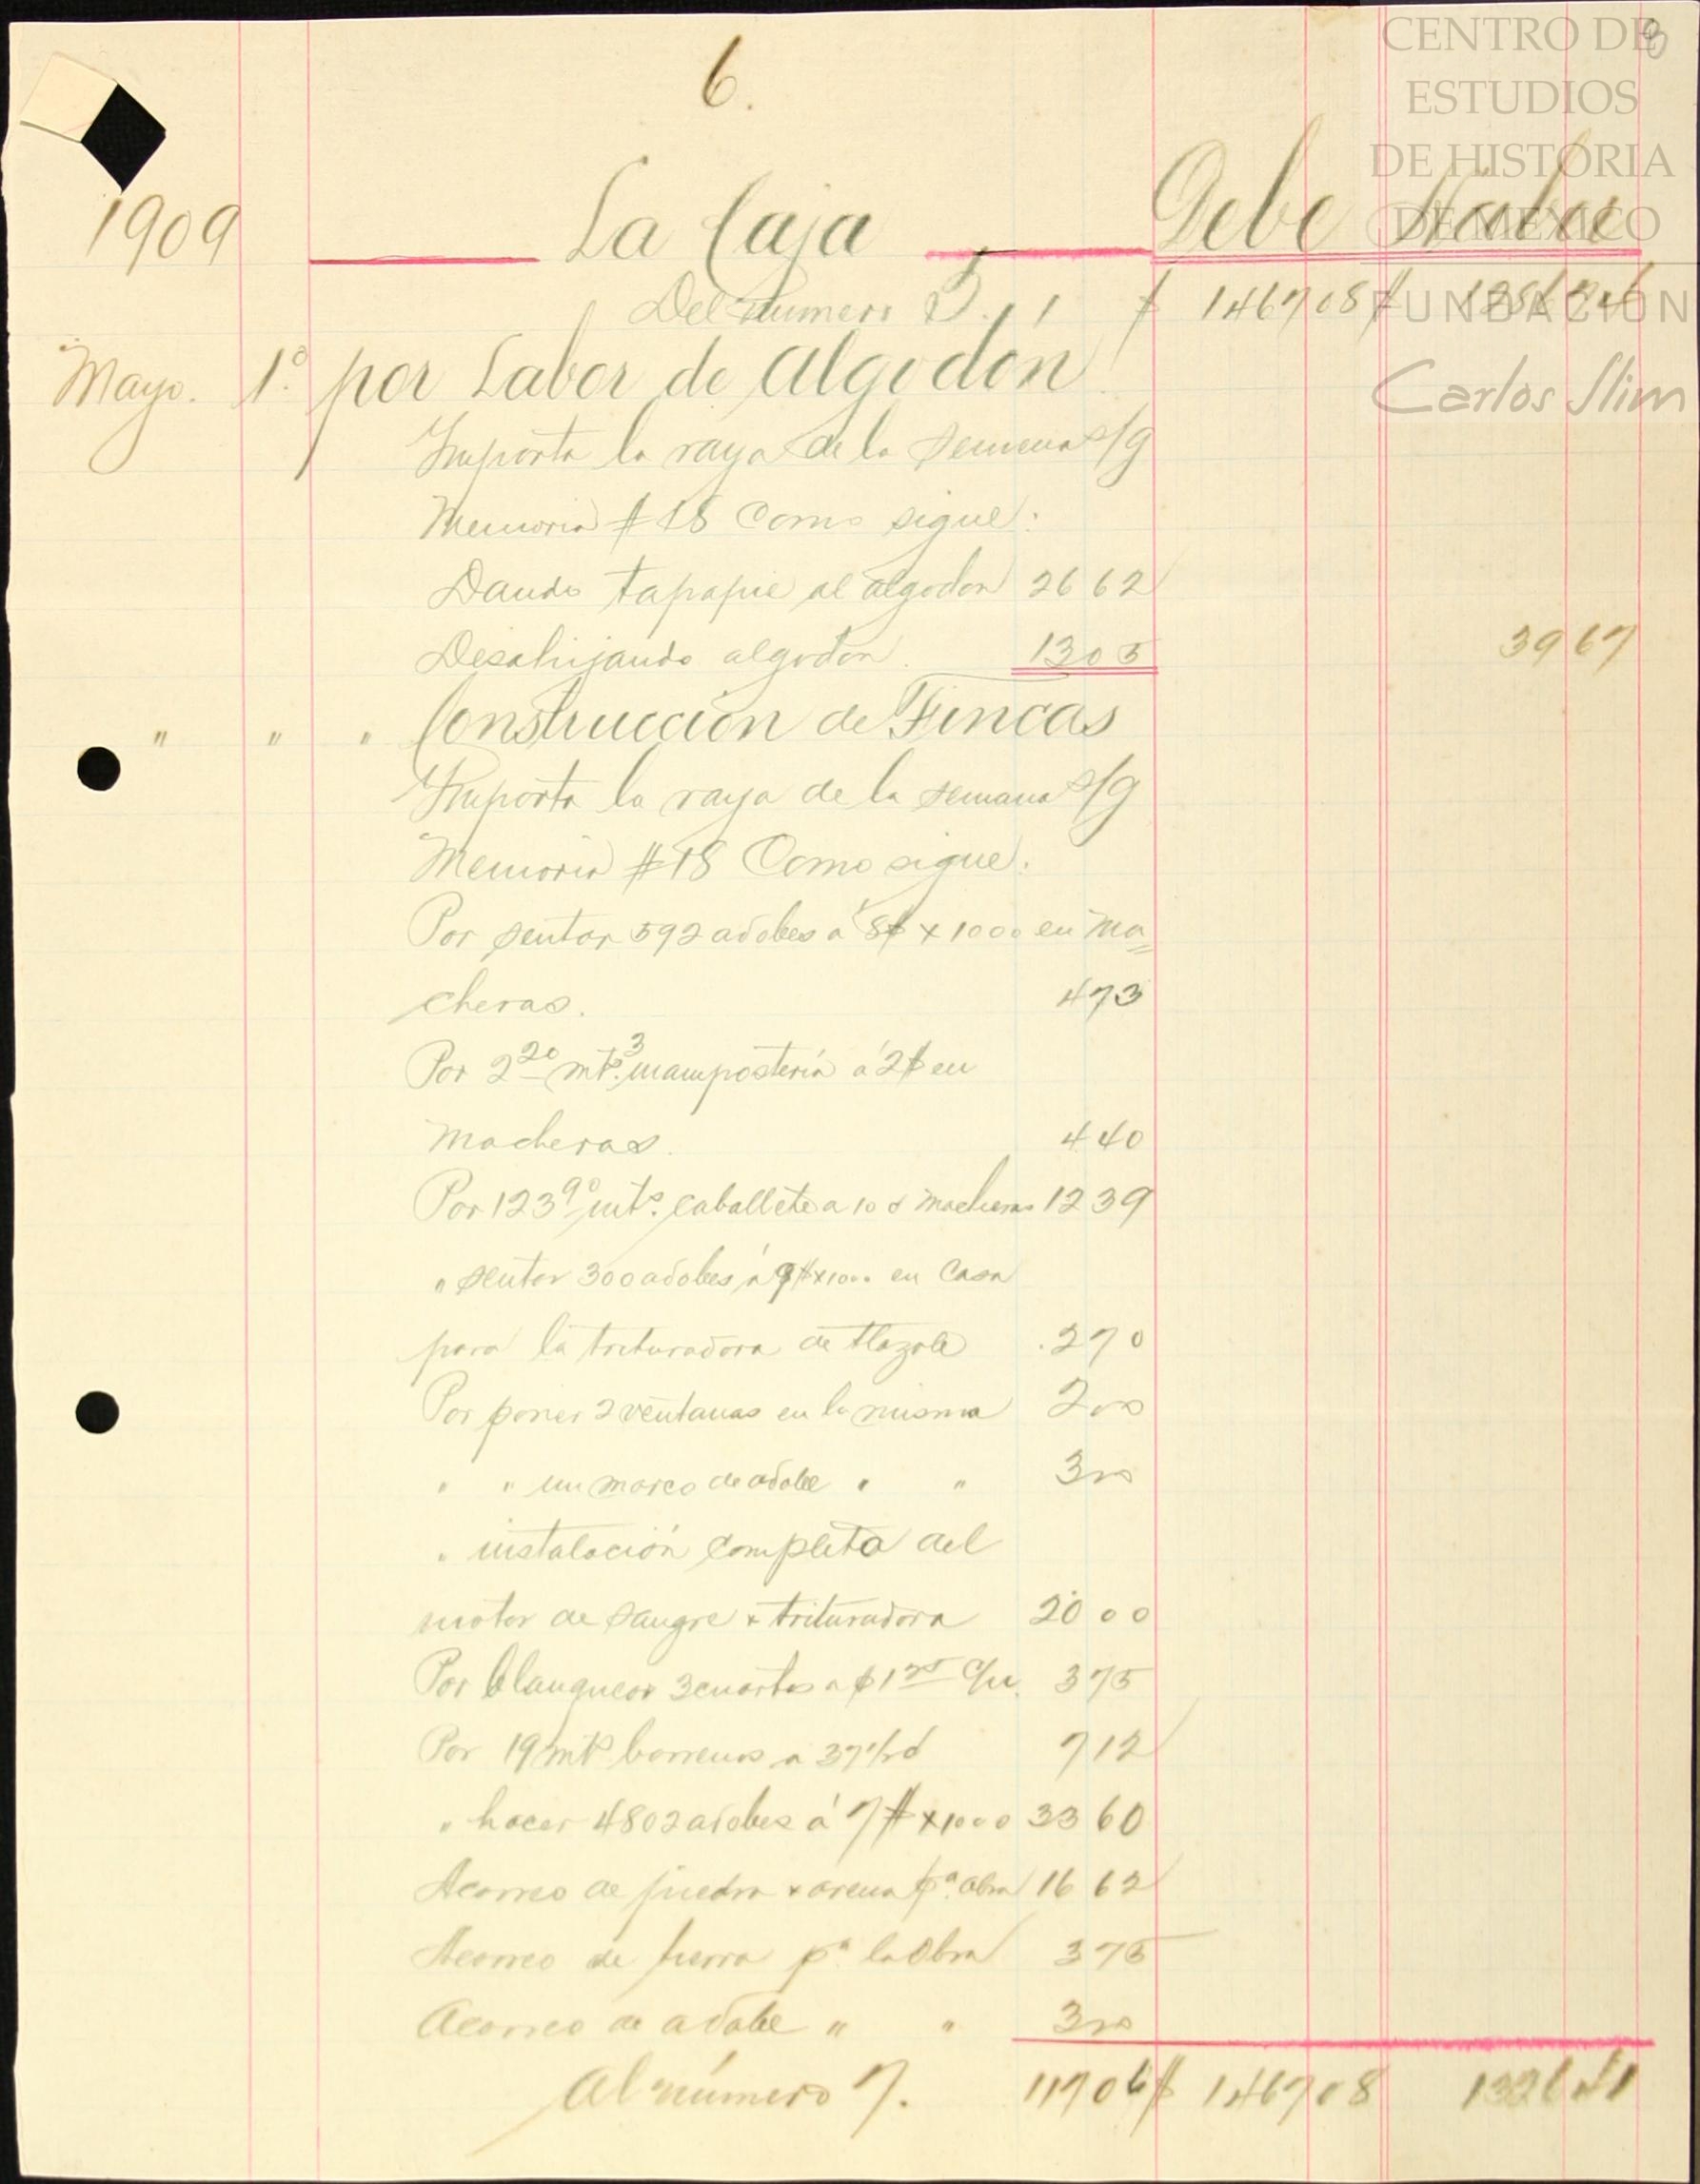 6.
CENTRO DE
ESTUDIOS
DE HISTORIA
DE MEXICO
FUNDACION
Carlos Slim
1909 La Caja Debe Haber
Del numero 5. $ 1467 08 $
Mayo. 1.º por Labor de algodón
Importa la raya de la semana s/g
Memoria #18 Como sigue:
Dando tapapie al algodon 26 62
Desahijando algodon. 13 05 39 67
" " " Construccion de Fincas
Importa la raya de la semana s/g
Memoria #18 Como sigue.
Por sentar 592 adobes á 8$ x 1000 en Ma=
cheras. 4 73
Por 2 20 mts.3 mamposteria á 2$ en
Macheras. 4 40
Por 123 90 mts. caballete a 10 ¢ macheras 12 39
" sentar 300 adobes á 9$ x 1000 en Casa
para la trituradora de tlazole . 2 70
Por poner 2 ventanas en la misma 2 00
" " un marco de adobe " " 3 00
" instalación completa del
motor de sangre x trituradora 20 00
Por blanquear 3 cuartos a $1 25 c/u. 3 75
Por 19 mts barrenos a 37 1/2 ¢ 7 12
" hacer 4802 adobes á 7$ x 1000 33 60
Acarreo de piedra x arena pa. obra 16 62
Acarreo de tierra pa la Obra 3 75
Acarreo de adobe " " 3 00
Al número 7. 117 06 $ 1467 08 1326 41